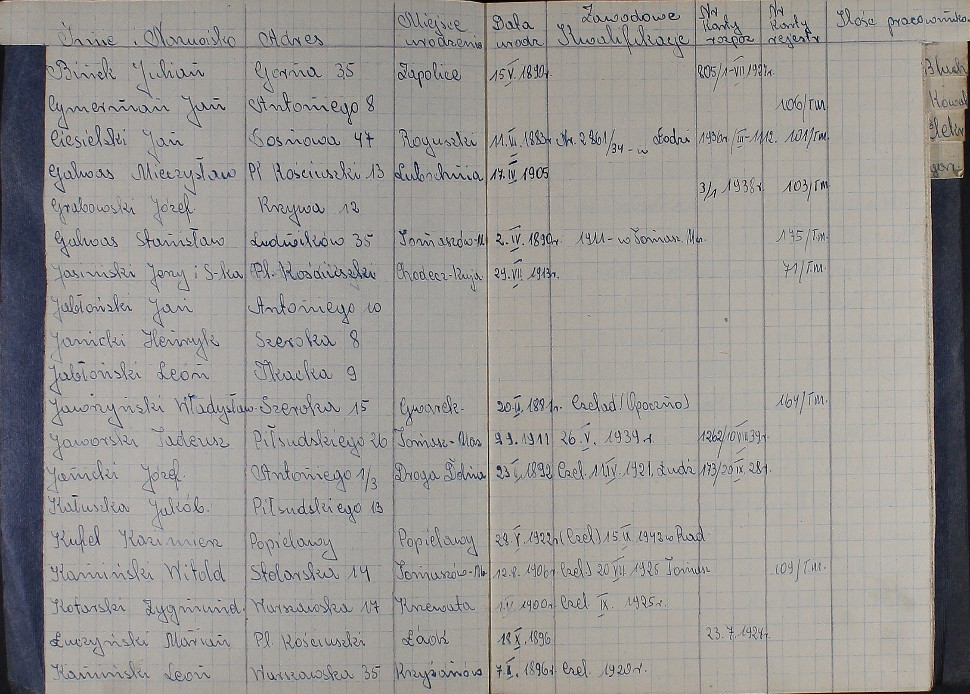 Imię i Nazwisko Adres Miejsce urodzenia Data urodz Zawodowe Kwalifikacje Nr Karty rozpoz Nr Karty rejestr Ilość pracowników
Binek Julian Górna 35 Zapolice 15 V. 1890r. 205/1-VII 1927r.
Cymerman Jan Antoniego 8 106/T.M.
Ciesielski Jan Sosnowa 47 Roguszki 11. VI. 1883r. Nr. 2861/34 - w Łodzi 101/T.M.
Galwas Mieczysław Pl Kościuszki 13 Lubochnia 17 IV 1905 3/1 1938r. 103/T.M.
Grabowski Józef. Krzywa 12
Galwas Stanisław Ludwików 35 Tomaszów-M 2. IV. 1890r. 1911 - w Tomasz. Maz. 175/T.M.
Jasiński Jerzy i S-ka Pl. Kościuszki Chodecz-Kuj. 29. VII 1913r. 71/T.M.
Jabłoński Jan Antoniego 10
Janicki Henryk Szeroka 8
Jabłoński Leon Tkacka 9
Jaworzyński Władysław Szeroka 15 Gwarek. 20. II. 1881r. Czelad (Opoczno) 164/T.M.
Jaworski Tadeusz Piłsudskiego 26 Tomasz-Maz 9 9. 1911 26. V. 1939 r. 1262/10 VII 39r.
Janicki Józef. Antoniego 1/3 Droga 1892 Czel. 1921. Łódź 173/20 IX 28r.
Kałuszka Jakób. Piłsudskiego 13
Kufel Kazimierz Popielawy Popielawy 29. V. 1922r. (Czel) 15 IX 1943 w Rad
Kamiński Witold Stolarska 14 Tomaszów-Ma 12. 8. 1906r. Czel) 20 VII 1926 Tomasz 109/T.M.
Kotarski Zygmund. Warszawska 17 Knewata 1900r. Czel IX. 1925r.
Łuczyński Marian Pl. Kościuszki 18 X. 1896 23. 7. 1927r.
Kamiński Leon Warszawska 35 Krzyżanów 7 II. 1896r. Czel. 1920r.